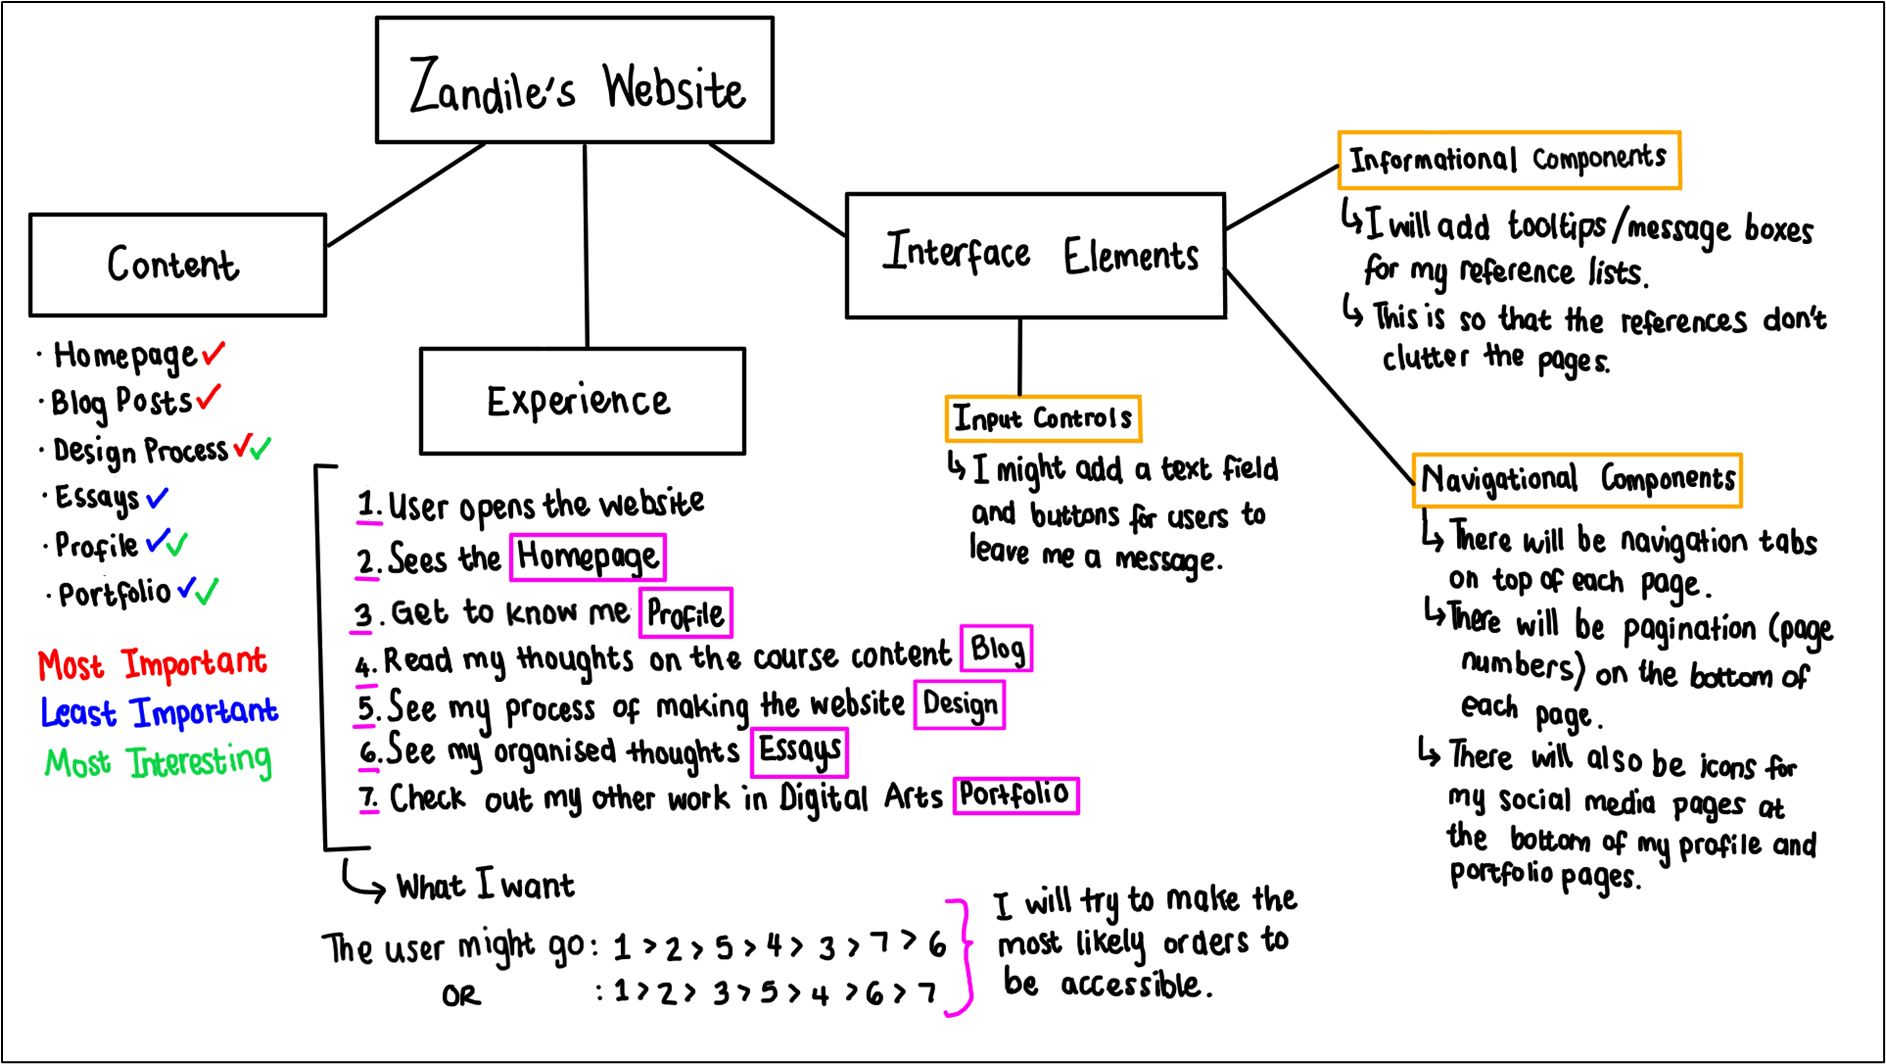 Zandile's Website
Content
· Homepage ✓
· Blog Posts ✓
· Design Process ✓✓
· Essays ✓
· Profile ✓✓
· Portfolio ✓✓
Most Important
Least Important
Most Interesting
Experience
1. User opens the website
2. Sees the Homepage
3. Get to know me Profile
4. Read my thoughts on the course content Blog
5. See my process of making the website Design
6. See my organised thoughts Essays
7. Check out my other work in Digital Arts Portfolio
↳ What I want
The user might go: 1 > 2 > 5 > 4 > 3 > 7 > 6
OR : 1 > 2 > 3 > 5 > 4 > 6 > 7
I will try to make the
most likely orders to
be accessible.
Interface Elements
Input Controls
↳ I might add a text field
and buttons for users to
leave me a message.
Informational Components
↳ I will add tooltips/message boxes
for my reference lists.
↳ This is so that the references don't
clutter the pages.
Navigational Components
↳ There will be navigation tabs
on top of each page.
↳ There will be pagination (page
numbers) on the bottom of
each page.
↳ There will also be icons for
my social media pages at
the bottom of my profile and
portfolio pages.